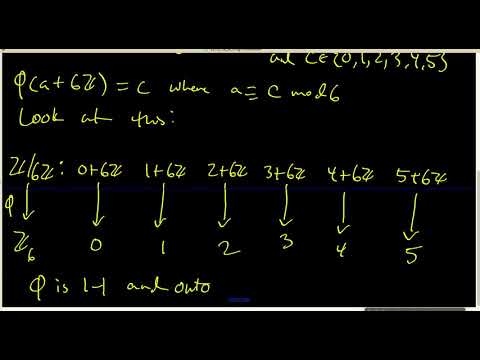 and C∈{0,1,2,3,4,5}
φ(a+6ℤ) = c where a ≡ c mod 6
Look at this:
ℤ/6ℤ: 0+6ℤ 1+6ℤ 2+6ℤ 3+6ℤ 4+6ℤ 5+6ℤ
φ
ℤ₆ 0 1 2 3 4 5
φ is 1-1 and onto